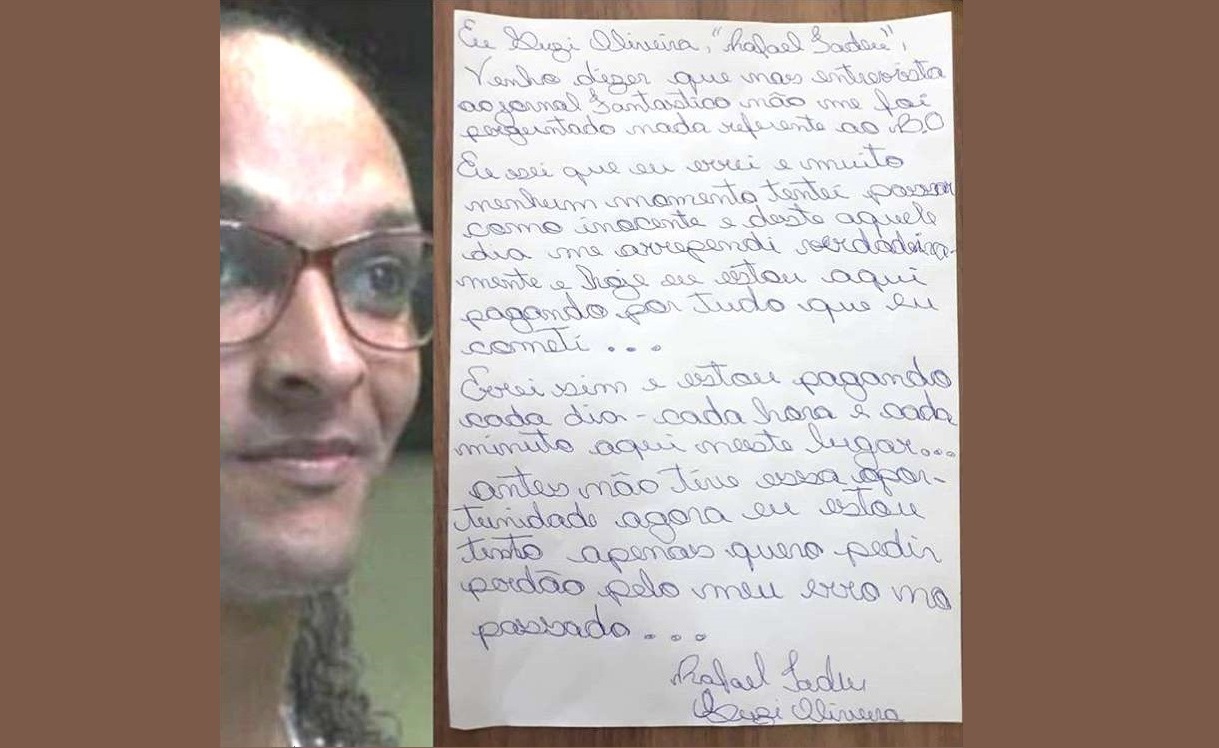 Eu Suzi Oliveira, "Rafael Tadeu",
Venho dizer que nas entrevista
ao jornal Fantastico não me foi
perguntado nada referente ao B.O
Eu sei que eu errei e muito
nenhum momento tentei passar
como inocente e deste aquele
dia me arrependi verdadeira-
mente e hoje eu estou aqui
pagando por tudo que eu
cometi ...
Errei sim e estou pagando
cada dia - cada hora e cada
minuto aqui neste lugar...
antes não tive essa opor-
tunidade agora eu estou
tento apenas quero pedir
perdão pelo meu erro no
passado ...
Rafael Tadeu
Suzi Oliveira